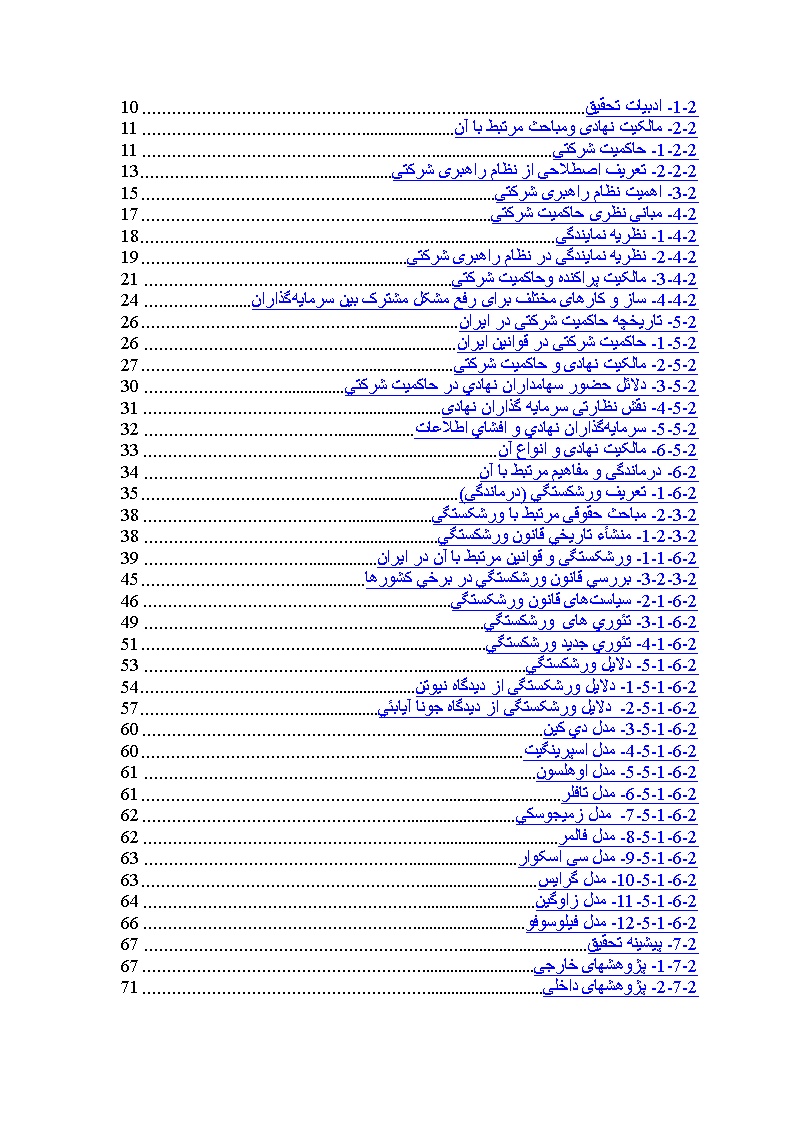 2-1- ادبیات تحقیق 10
2-2- مالکیت نهادی ومباحث مرتبط با آن 11
2-2-1- حاکمیت شرکتی 11
2-2-2- تعریف اصطلاحی از نظام راهبری شرکتی 13
2-3- اهمیت نظام راهبری شرکتی 15
2-4- مبانی نظری حاکمیت شرکتی 17
2-4-1- نظریه نمایندگی 18
2-4-2- نظریه نمایندگی در نظام راهبری شرکتی 19
2-4-3- مالکیت پراکنده وحاکمیت شرکتی 21
2-4-4- ساز و کارهای مختلف برای رفع مشکل مشترک بین سرمایه‌گذاران 24
2-5- تاریخچه حاکمیت شرکتی در ایران 26
2-5-1- حاکمیت شرکتی در قوانین ایران 26
2-5-2- مالکیت نهادی و حاکمیت شرکتی 27
2-5-3- دلائل حضور سهامداران نهادي در حاکمیت شرکتي 30
2-5-4- نقش نظارتی سرمایه گذاران نهادی 31
2-5-5- سرمایه‌گذاران نهادي و افشاي اطلاعات 32
2-5-6- مالکیت نهادی و انواع آن 33
2-6- درماندگی و مفاهیم مرتبط با آن 34
2-6-1- تعریف ورشکستگي (درماندگی) 35
2-3-2- مباحث حقوقی مرتبط با ورشکستگی 38
2-3-2-1- منشأء تاریخي قانون ورشکستگي 38
2-6-1-1- ورشکستگی و قوانین مرتبط با آن در ایران 39
2-3-2-3- بررسي قانون ورشکستگي در برخي کشورها 45
2-6-1-2- سیاست‌های قانون ورشکستگی 46
2-6-1-3- تئوري های ورشکستگي 49
2-6-1-4- تئوري جدید ورشکستگي 51
2-6-1-5- دلایل ورشکستگي 53
2-6-1-5-1- دلایل ورشکستگی از دیدگاه نیوتن 54
2-6-1-5-2- دلایل ورشکستگی از دیدگاه جونا آیابئي 57
2-6-1-5-3- مدل دي کین 60
2-6-1-5-4- مدل اسپرینگیت 60
2-6-1-5-5- مدل اوهلسون 61
2-6-1-5-6- مدل تافلر 61
2-6-1-5-7- مدل زمیجوسکي 62
2-6-1-5-8- مدل فالمر 62
2-6-1-5-9- مدل سی اسکوار 63
2-6-1-5-10- مدل گرایس 63
2-6-1-5-11- مدل زاوگین 64
2-6-1-5-12- مدل فیلوسوفو 66
2-7- پیشینه تحقیق 67
2-7-1- پژوهشهای خارجی 67
2-7-2- پژوهشهای داخلی 71